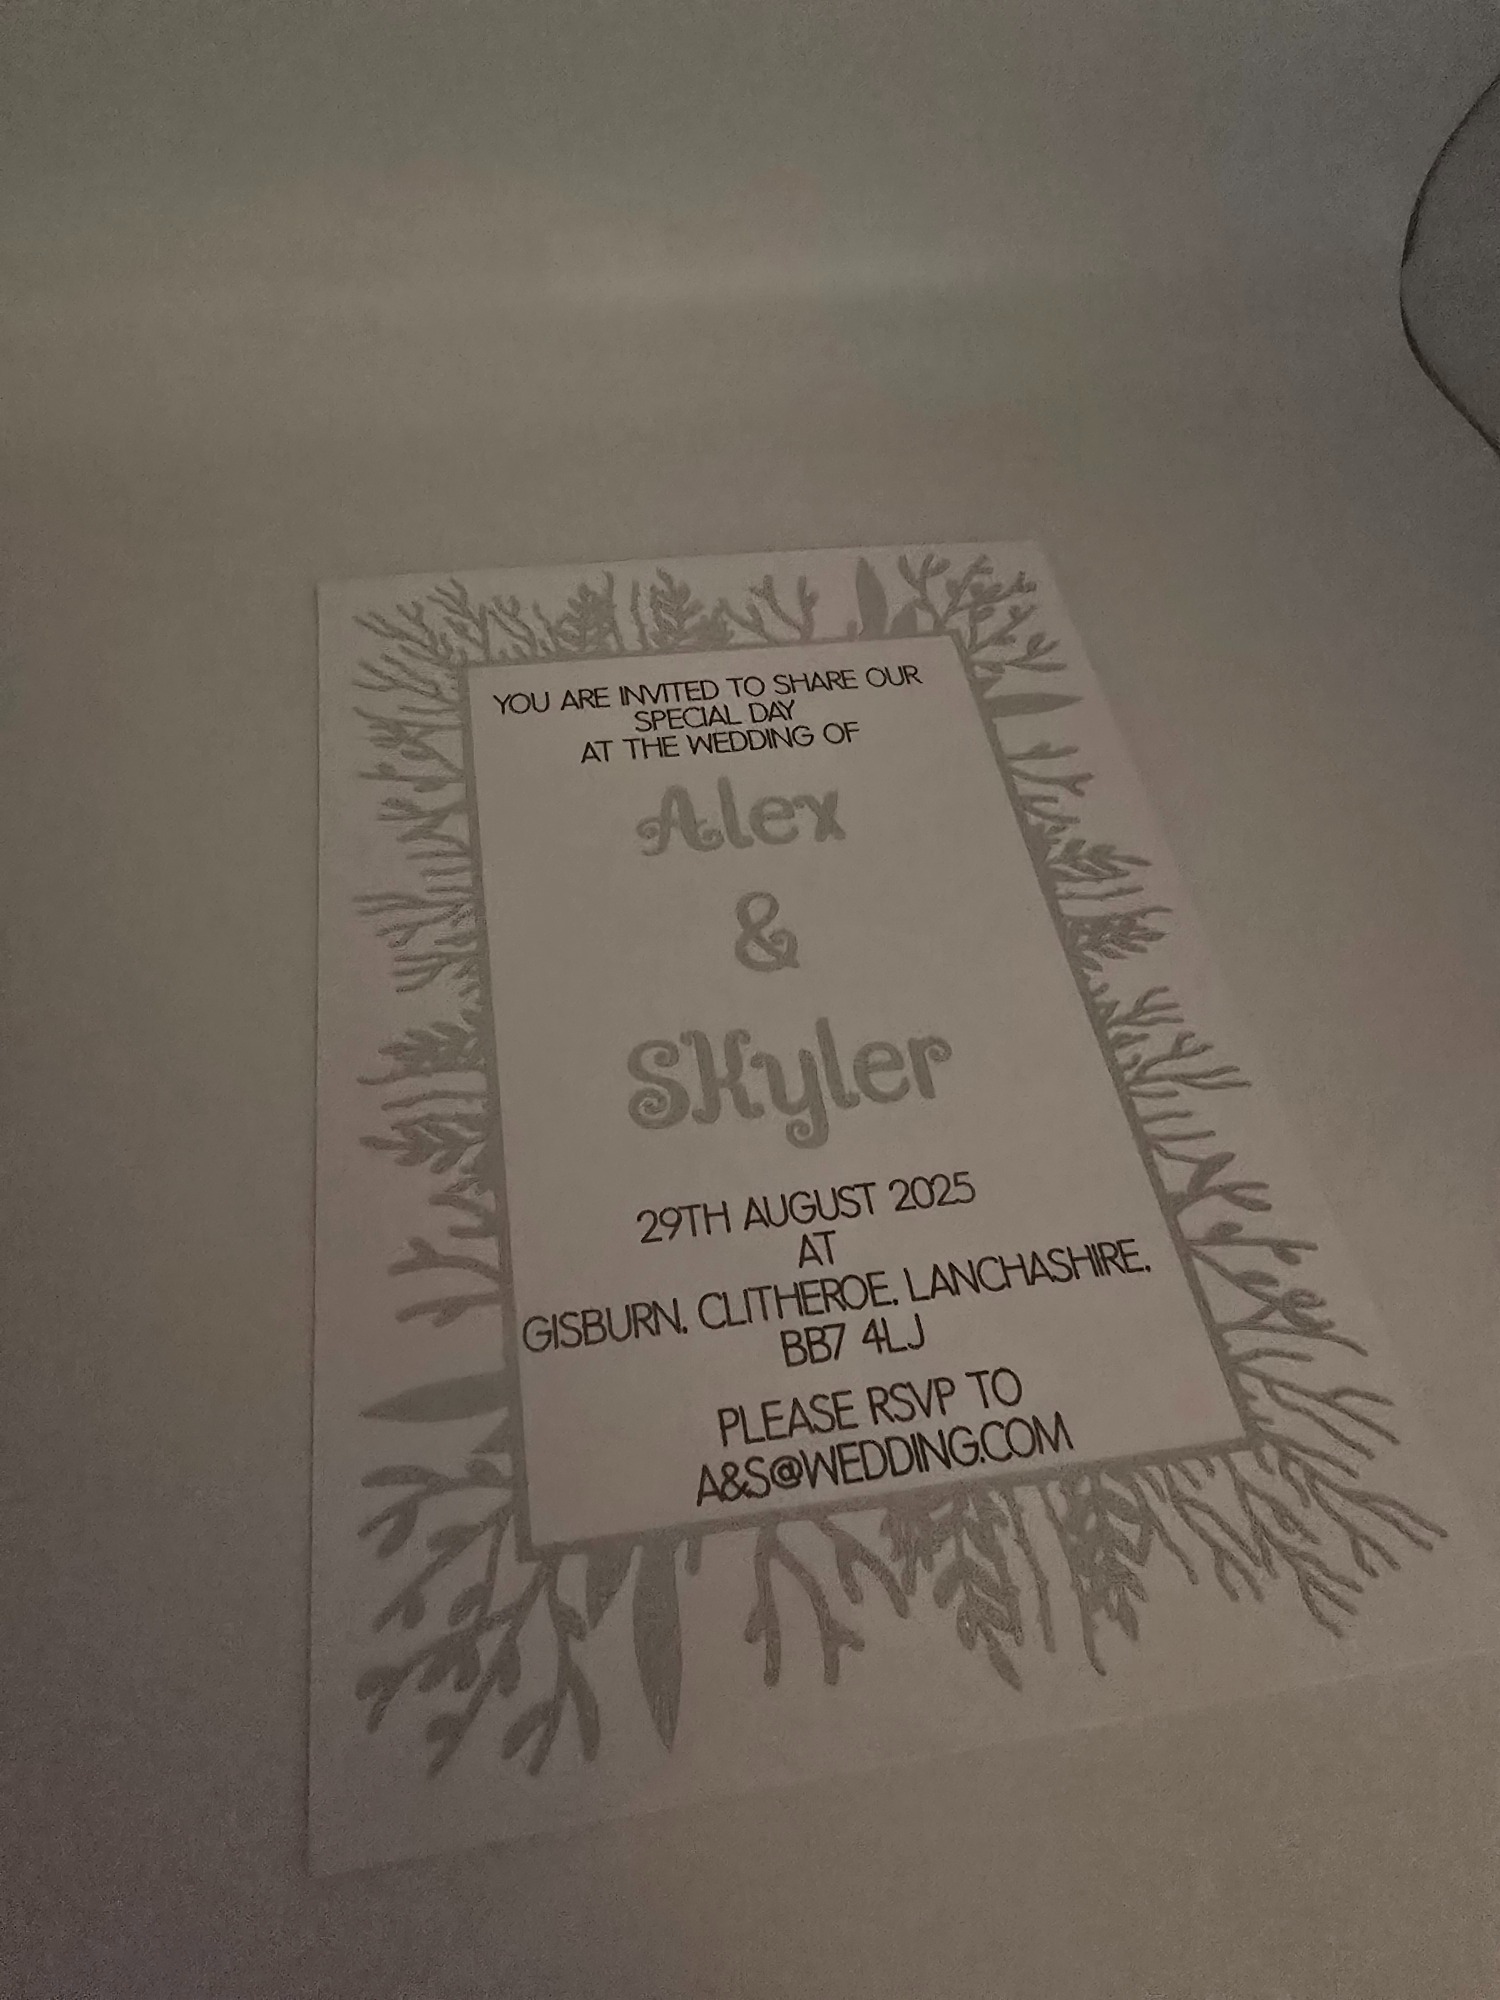 YOU ARE INVITED TO SHARE OUR
SPECIAL DAY
AT THE WEDDING OF
Alex
&
SKyler
29TH AUGUST 2025
AT
GISBURN, CLITHEROE, LANCHASHIRE,
BB7 4LJ
PLEASE RSVP TO
A&S@WEDDING.COM